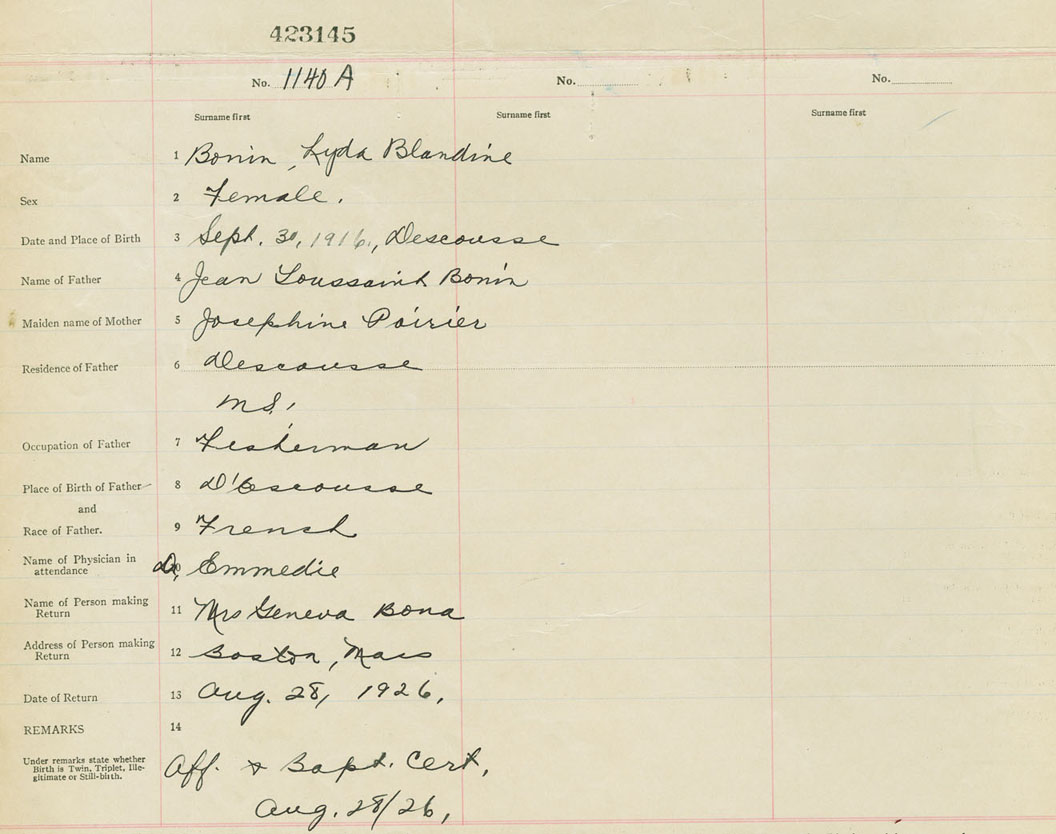 423145
No. 1140 A No. No.
Surname first Surname first Surname first
Name 1 Bonin, Lyda Blandine
Sex 2 Female.
Date and Place of Birth 3 Sept. 30, 1916, Descousse
Name of Father 4 Jean Toussaint Bonin
Maiden name of Mother 5 Josephine Poirier
Residence of Father 6 Descousse
N.S.
Occupation of Father 7 Fisherman
Place of Birth of Father 8 D'Escousse
and
Race of Father. 9 French
Name of Physician in
attendance Dr. Emmedie
Name of Person making
Return 11 Mrs Geneva Bona
Address of Person making
Return 12 Boston, Mass
Date of Return 13 Aug. 28, 1926,
REMARKS 14
Under remarks state whether
Birth is Twin, Triplet, Ille-
gitimate or Still-birth.
Aff. & Bapt. Cert,
Aug. 28/26,